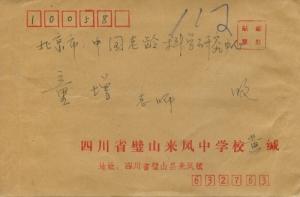 10058
112
贴邮
票处
北京市:中国老龄科学研究
童增 老师 收
四川省璧山来凤中学校 黄 缄
地址:四川省璧山县来凤镇
632763